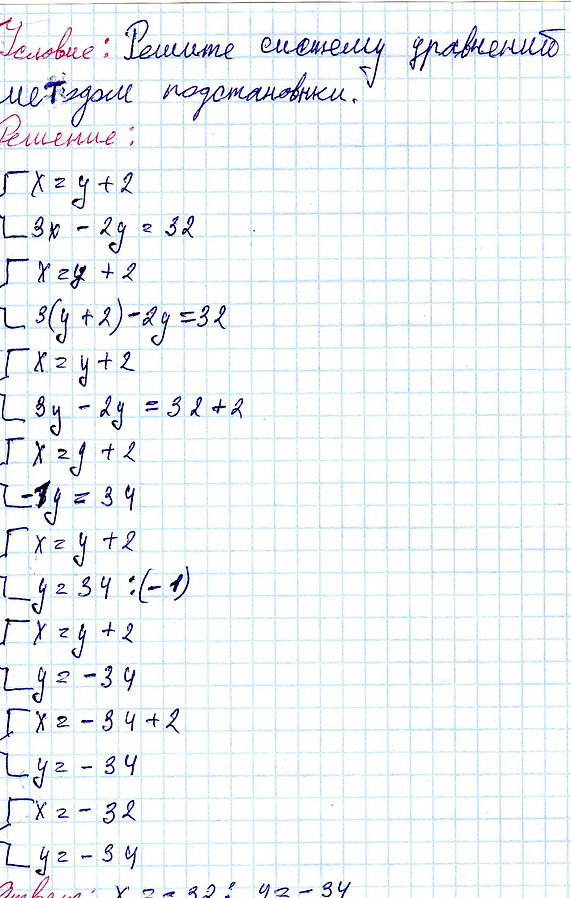 Условие: Решите систему уравнений
методом подстановки.
Решение:
x = y + 2
3x - 2y = 32
x = y + 2
3(y + 2) - 2y = 32
x = y + 2
3y - 2y = 32 + 2
x = y + 2
-1y = 34
x = y + 2
y = 34 : (-1)
x = y + 2
y = -34
x = -34 + 2
y = -34
x = -32
y = -34
Ответ: x = -32; y = -34